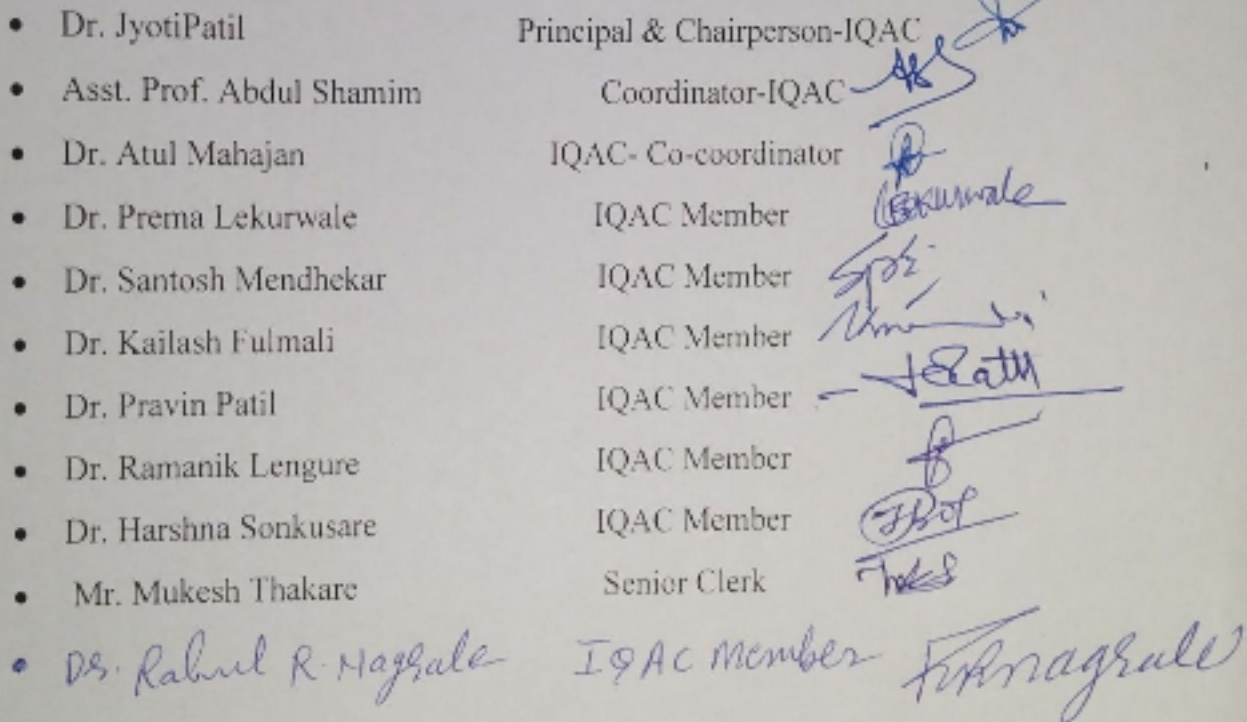 • Dr. JyotiPatil Principal & Chairperson-IQAC
• Asst. Prof. Abdul Shamim Coordinator-IQAC
• Dr. Atul Mahajan IQAC- Co-coordinator
• Dr. Prema Lekurwale IQAC Member Lekurwale
• Dr. Santosh Mendhekar IQAC Member
• Dr. Kailash Fulmali IQAC Member
• Dr. Pravin Patil IQAC Member
• Dr. Ramanik Lengure IQAC Member
• Dr. Harshna Sonkusare IQAC Member
• Mr. Mukesh Thakare Senior Clerk
• Dr. Rahul R. Nagrale IQAC Member RRnagrale